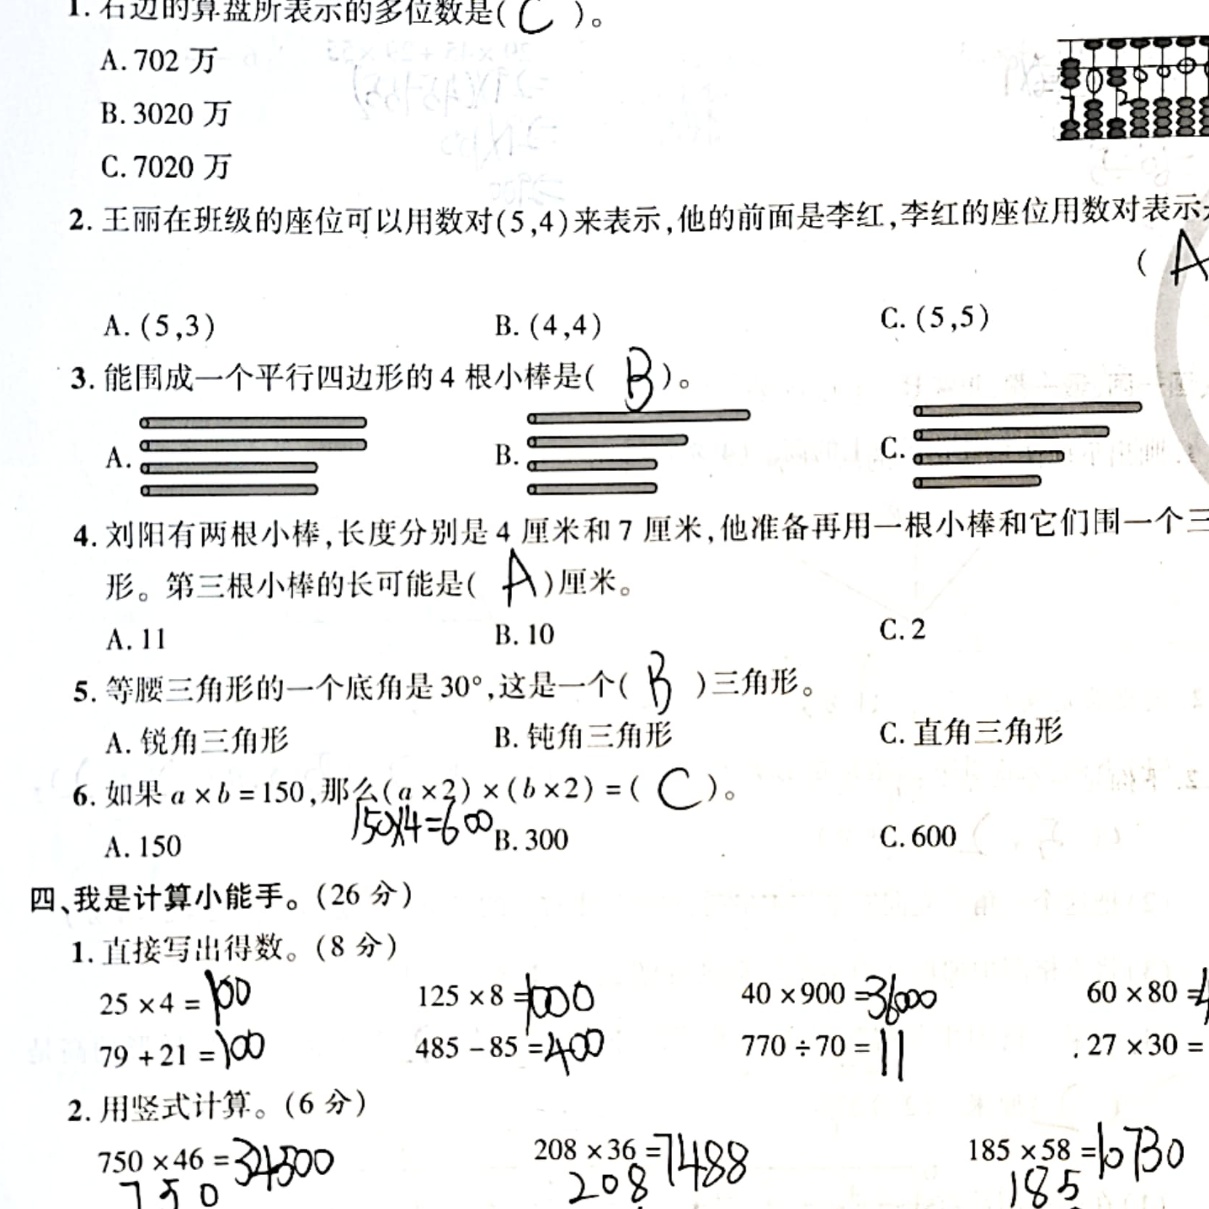 1. 右边的算盘所表示的多位数是( C )。
A. 702 万
B. 3020 万
C. 7020 万
2. 王丽在班级的座位可以用数对(5,4)来表示,他的前面是李红,李红的座位用数对表示
( A
A. (5,3) B. (4,4) C. (5,5)
3. 能围成一个平行四边形的 4 根小棒是( B )。
A. B. C.
4. 刘阳有两根小棒,长度分别是 4 厘米和 7 厘米,他准备再用一根小棒和它们围一个三
形。第三根小棒的长可能是( A )厘米。
A. 11 B. 10 C. 2
5. 等腰三角形的一个底角是 30°,这是一个( B )三角形。
A. 锐角三角形 B. 钝角三角形 C. 直角三角形
6. 如果 a×b=150,那么(a×2)×(b×2)=( C )。
150×4=600
A. 150 B. 300 C. 600
四、我是计算小能手。(26 分)
1. 直接写出得数。(8 分)
25×4=100 125×8=1000 40×900=36000 60×80=4
79+21=100 485-85=400 770÷70=11 27×30=
2. 用竖式计算。(6 分)
750×46=34500 208×36=7488 185×58=10730
750 208 185